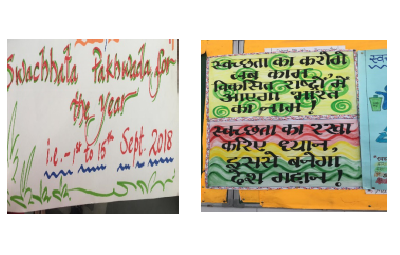 Swachhata Pakhwada for
the year
i.e. - 1st to 15th Sept. 2018
स्वच्छता का करोगे
जब काम,
विकसित राष्ट्रों में
आएगा भारत
का नाम !
स्वच्छता का रखा
करिए ध्यान,
इससे बनेगा
देश महान !